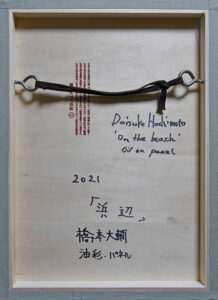 Daisuke Hashimoto
'On the beach'
Oil on panel
2021
「浜辺」
橋本大輔
油彩・パネル